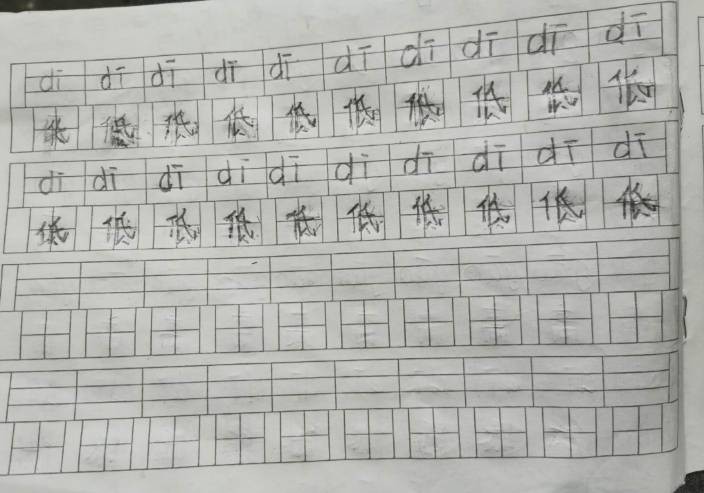 dī dī dī dī dī dī dī dī dī dī
低 低 低 低 低 低 低 低 低 低
dī dī dī dī dī dī dī dī dī dī
低 低 低 低 低 低 低 低 低 低